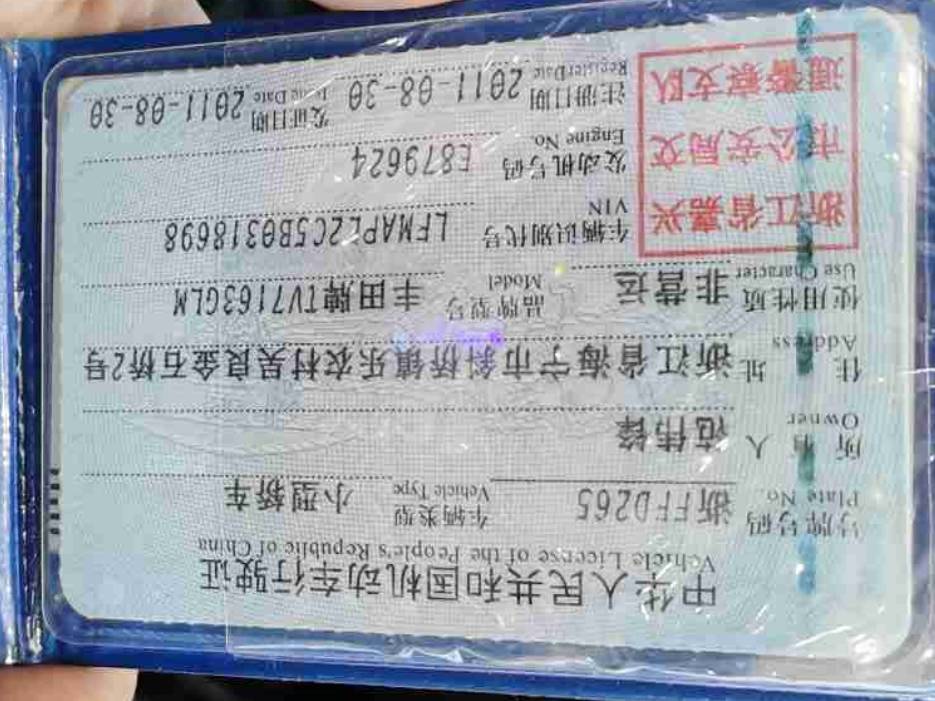 中华人民共和国机动车行驶证
Vehicle License of the People's Republic of China
号牌号码 浙FFD265 车辆类型 小型轿车
Plate No. Vehicle Type
所有人 范伟锋
Owner
住址 浙江省海宁市斜桥镇乐农村吴良金石桥2号
Address
使用性质 非营运 品牌型号 丰田牌TV7163GLM
Use Character Model
浙江省嘉兴
市公安局交
通警察支队
车辆识别代号 LFMAPL2C5B0318698
VIN
发动机号码 E879624
Engine No.
注册日期 2011-08-30 发证日期 2011-08-30
Register Date Issue Date